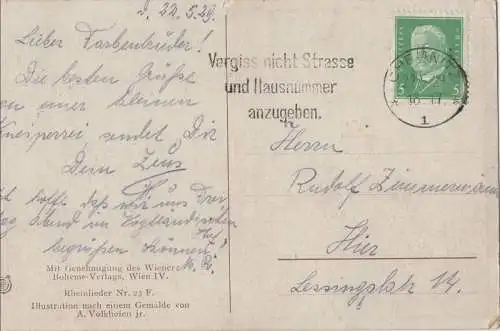 d. 22.5.29.
Lieber Farbenbruder!
Die besten Grüße
von einer kleinen
Kneiperei sendet Dir
Dein Zeus
hoffe, daß wir uns Frei
tag Abend im Vogtländischen
Hof
begrüßen können
Mit Genehmigung des Wiener
Boheme-Verlags, Wien IV.
Rheinlieder Nr. 23 F.
Illustration nach einem Gemälde von
A. Volkhofen jr.
Vergiss nicht Strasse
und Hausnummer
anzugeben.
5 5
1
Herrn
Rudolf Zimmermann
Hier
Lessingplatz 14.